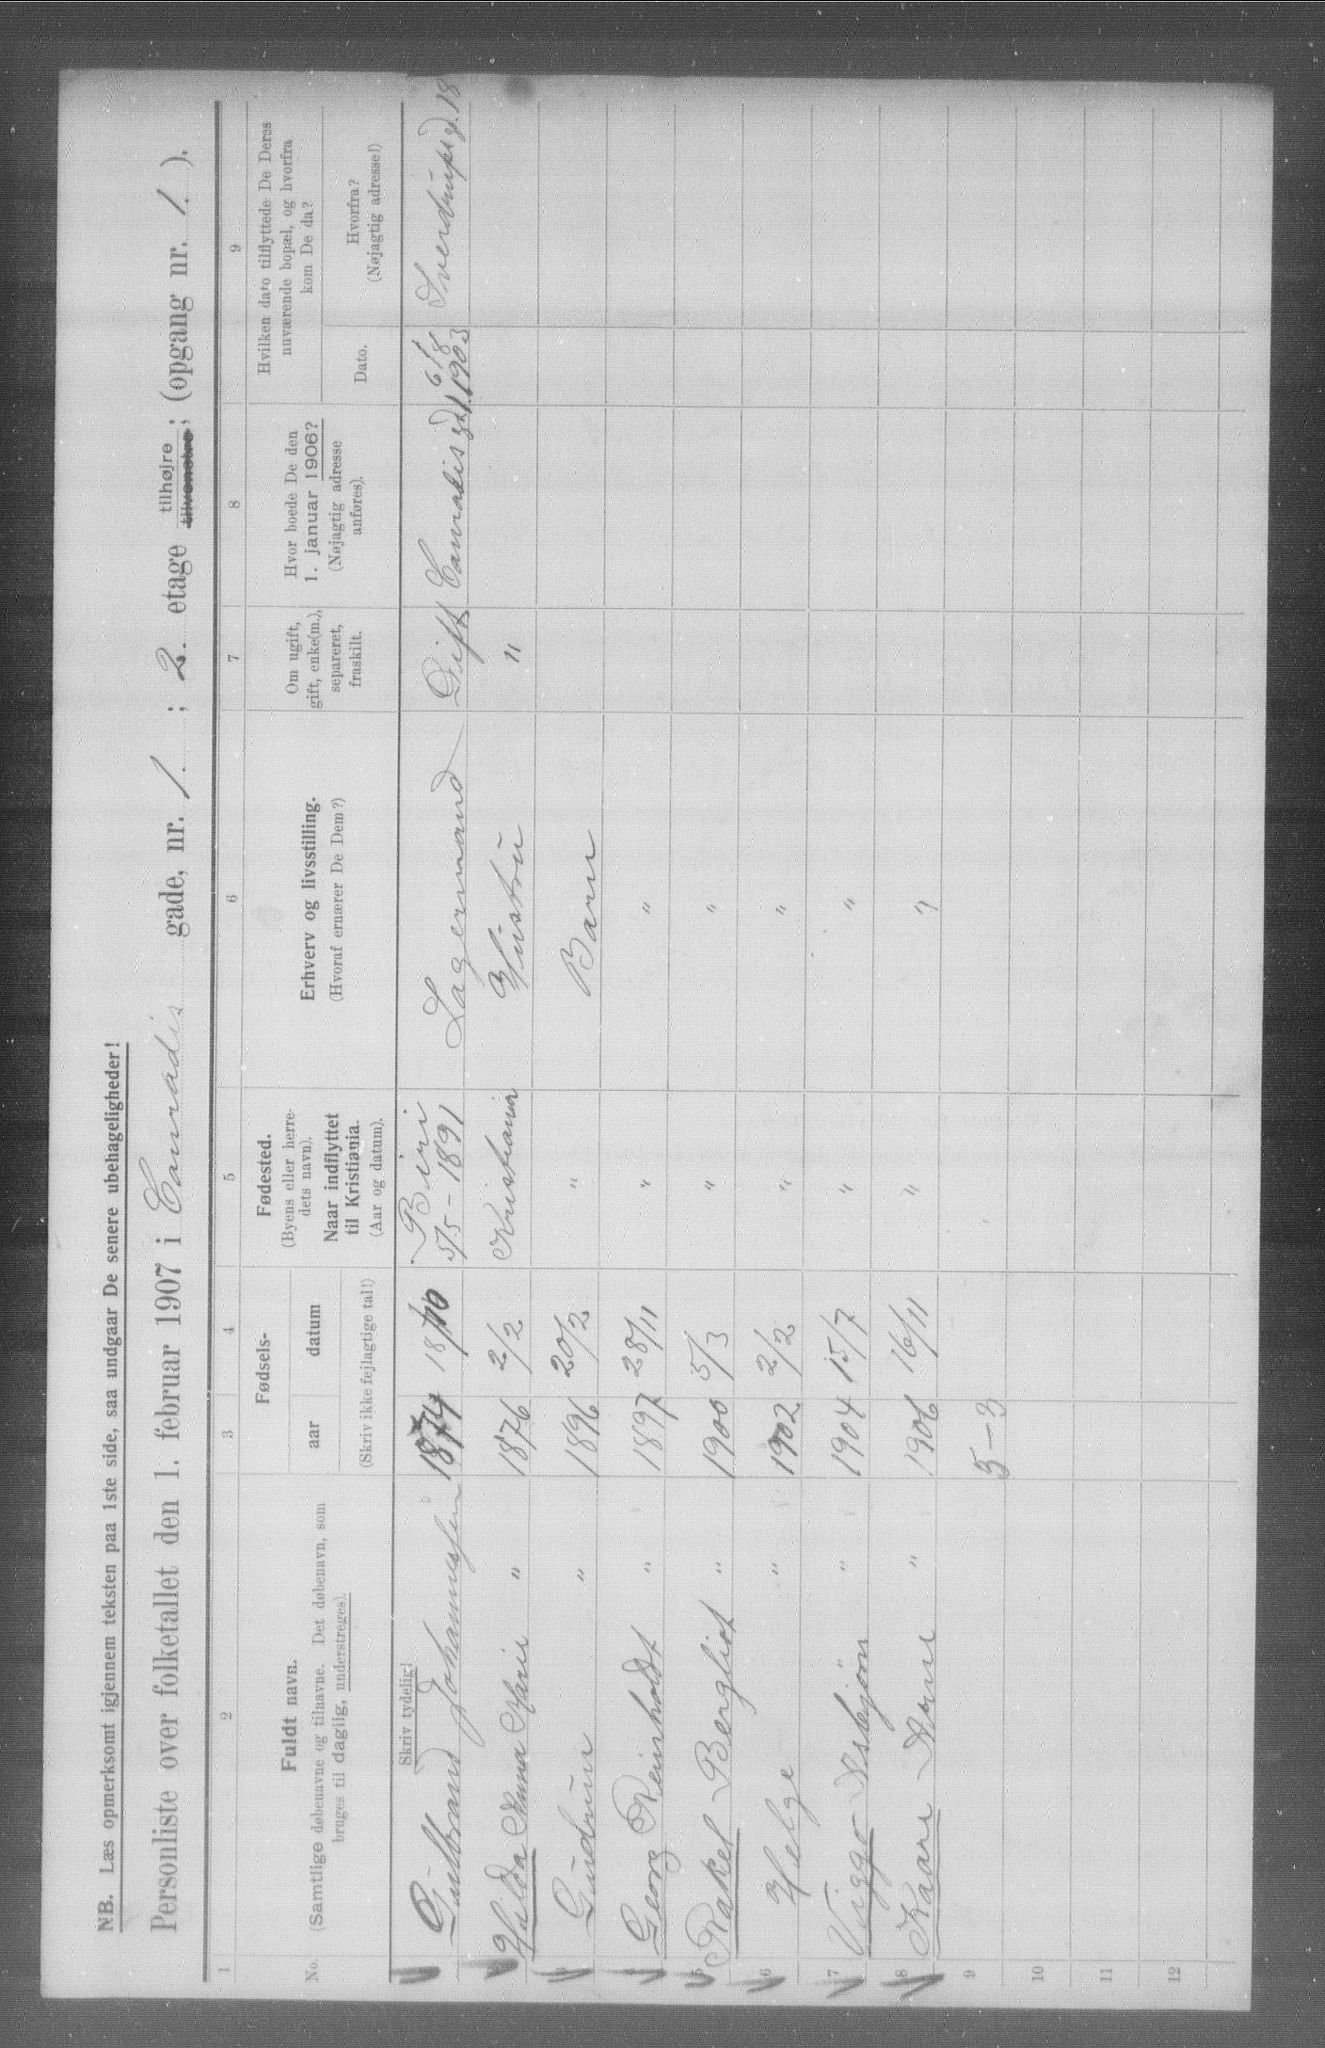 NB. Læs opmerksomt igjennem teksten paa 1ste side, saa undgaar De senere ubehageligheder!
Personliste over folketallet den 1. februar 1907 i Conradis gade, nr. 1. ; 2. etage tilhøjre tilvenstre; (opgang nr. 1. ).
1 2 3 4 5 6 7 8 9
No.
Fuldt navn.
(Samtlige døbenavne og tilnavne. Det døbenavn, som
bruges til daglig, understreges).
Fødsels-
aar datum
(Skriv ikke fejlagtige tal!)
Fødested.
(Byens eller herre-
dets navn).
Naar indflyttet
til Kristiania.
(Aar og datum).
Erhverv og livsstilling.
(Hvoraf ernærer De Dem?)
Om ugift,
gift, enke(m.),
separeret,
fraskilt.
Hvor boede De den
1. januar 1906?
(Nøjagtig adresse
anføres).
Hvilken dato tilflyttede De Deres
nuværende bopæl, og hvorfra
kom De da?
Dato.
Hvorfra?
(Nøjagtig adresse!)
Skriv tydelig!
Gulbrand Johannessen 1874 18/10 Biri 5/5 - 1891 Lagermand Gift Conradis gd. 1. 1903 Sverdrupsgd. 18
Hilda Anna Marie " 1876 2/2 Kristiania Hustru "
3 Gudrun " 1896 20/2 " Barn
Georg Reinholdt " 1897 28/11 " "
5 Rakel Bergliot " 1900 5/3 " "
6 Helge " 1902 2/2 " "
7 Viggo Asbjørn " 1904 15/7 " "
8 Kaare Arne " 1906 16/11 " "
9 5-3
10
11
12